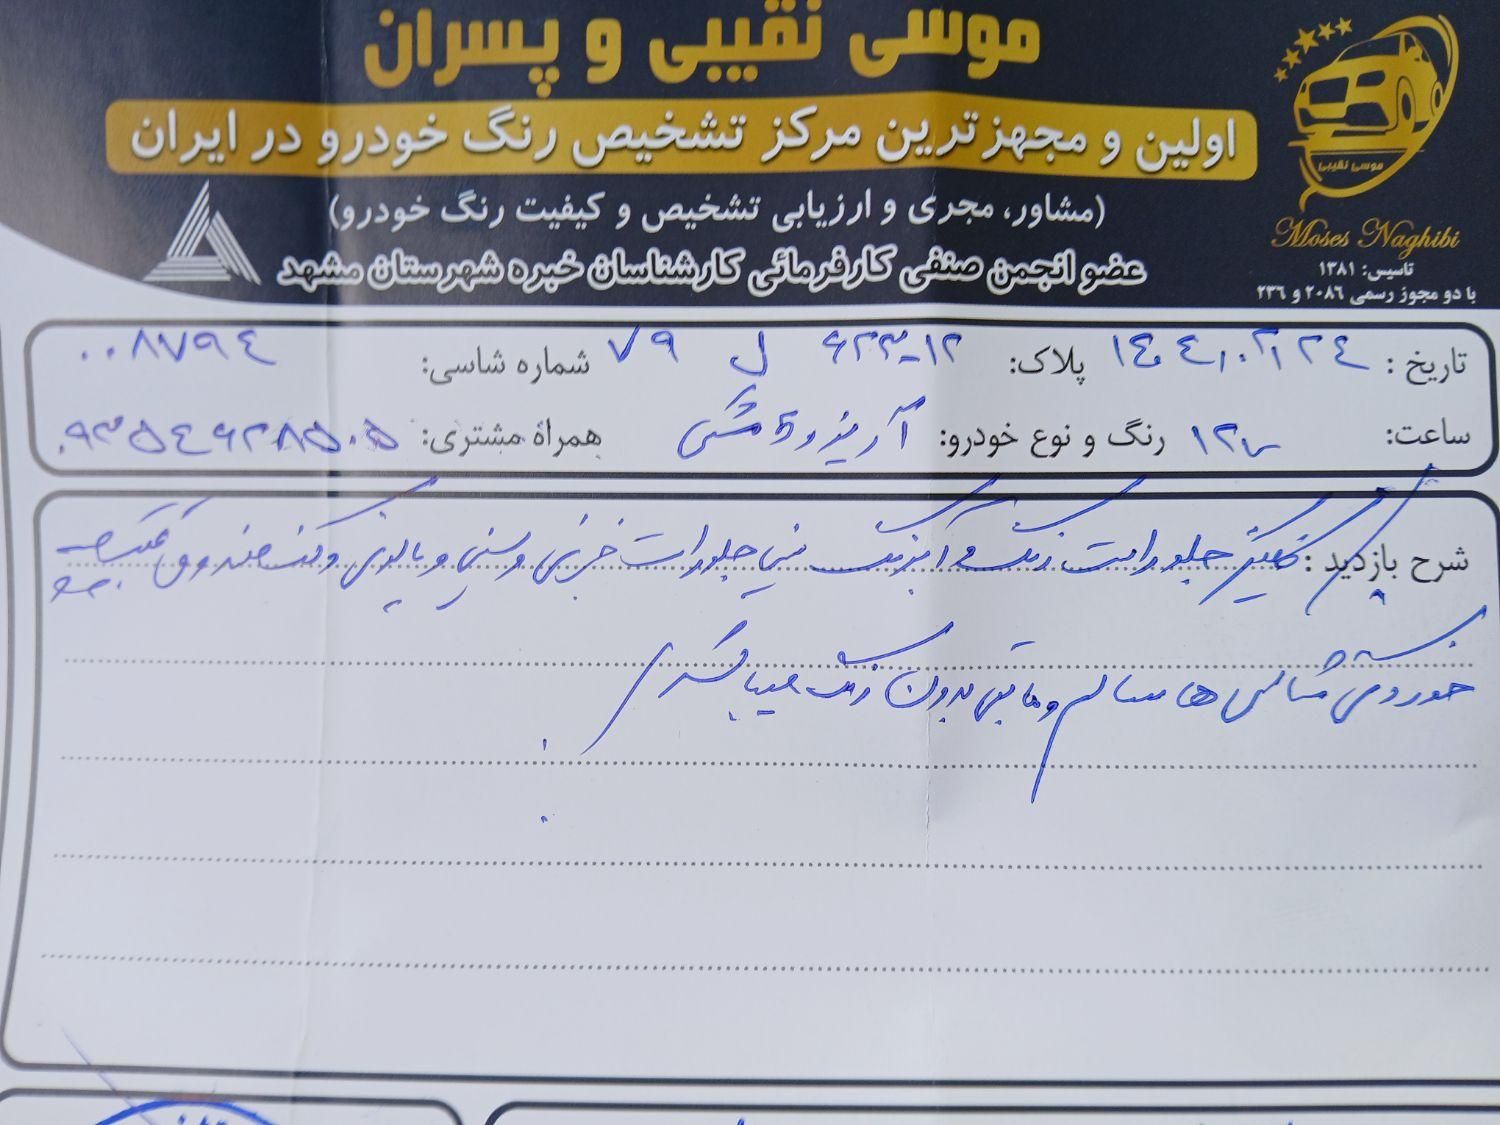 موسی نقیبی و پسران
اولین و مجهزترین مرکز تشخیص رنگ خودرو در ایران
(مشاور، مجری و ارزیابی تشخیص و کیفیت رنگ خودرو)
عضو انجمن صنفی کارفرمائی کارشناسان خبره شهرستان مشهد
موسی نقیبی
Moses Naghibi
تاسیس: ۱۳۸۱
با دو مجوز رسمی ۲۰۸۶ و ۲۳۶
تاریخ: ۱۴۰۴/۰۲/۲۴ پلاک: ۱۲-۶۲۳ ل ۷۹ شماره شاسی: ۰۰۸۷۹۴
ساعت: ۱۲ رنگ و نوع خودرو: آریزو ۵ مشکی همراه مشتری: ۰۹۳۵۴۶۲۸۵۰۵
شرح بازدید: گلگیر جلو راست رنگ و جلو راست خرابی و سینی و بالای و کف صندوق عقب
خوردگی شاسی ها سالم و مابقی بدون رنگ میباشد